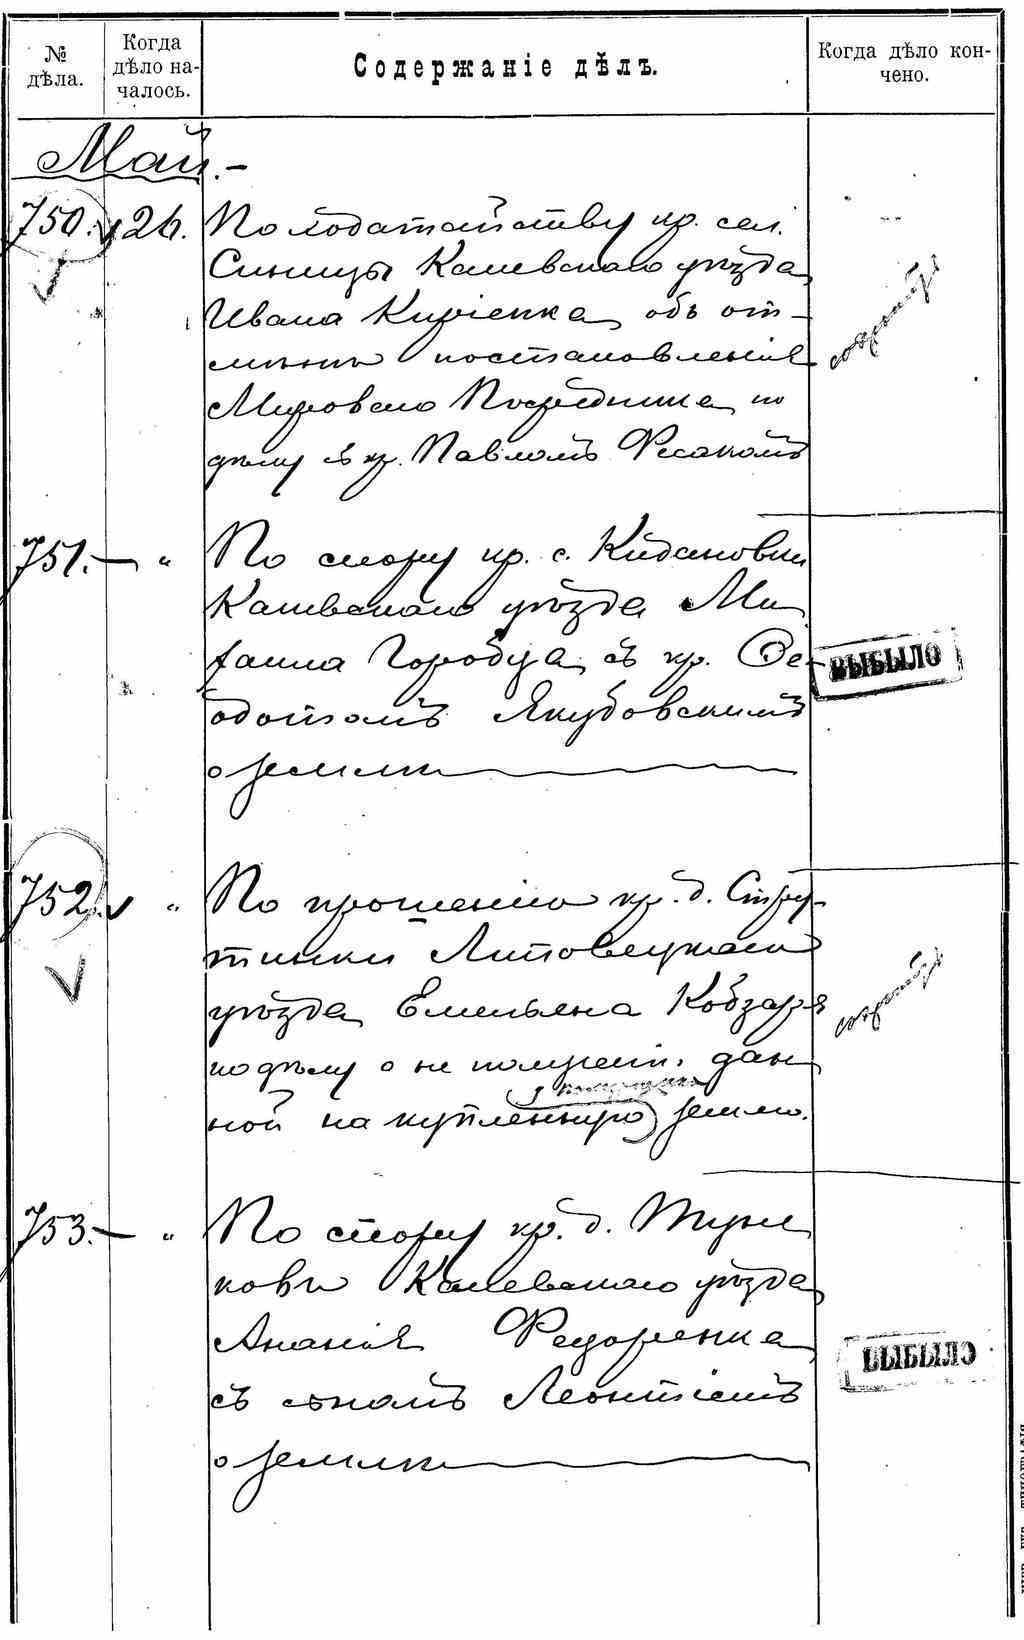 № дѣла.
Когда дѣло на-
чалось.
Содержаніе дѣлъ.
Когда дѣло кон-
чено.
Май.-
750. 26. По ходатайству кр. сел.
Синицы Каневскаго уѣзда
Ивана Киріенка объ от-
мѣнѣ постановленія
Мироваго Посредника по
дѣлу съ кр. Павломъ Фесакомъ
751. — " По спору кр. с. Кидановки
Каневскаго уѣзда Ми
хаила Городца съ кр. Ѳе-
одотомъ Якубовскимъ
о землѣ
ВЫБЫЛО
752. " По прошенію кр. д. Стру-
тинки Липовецкаго
уѣзда Емельяна Кобзаря
по дѣлу о не получен. дан
ной на купленную землю.
753. — " По спору кр. д.
ковъ Каневскаго уѣзда
Ананія Федоренка
съ сыномъ Леонтіемъ
о землѣ
ВЫБЫЛО